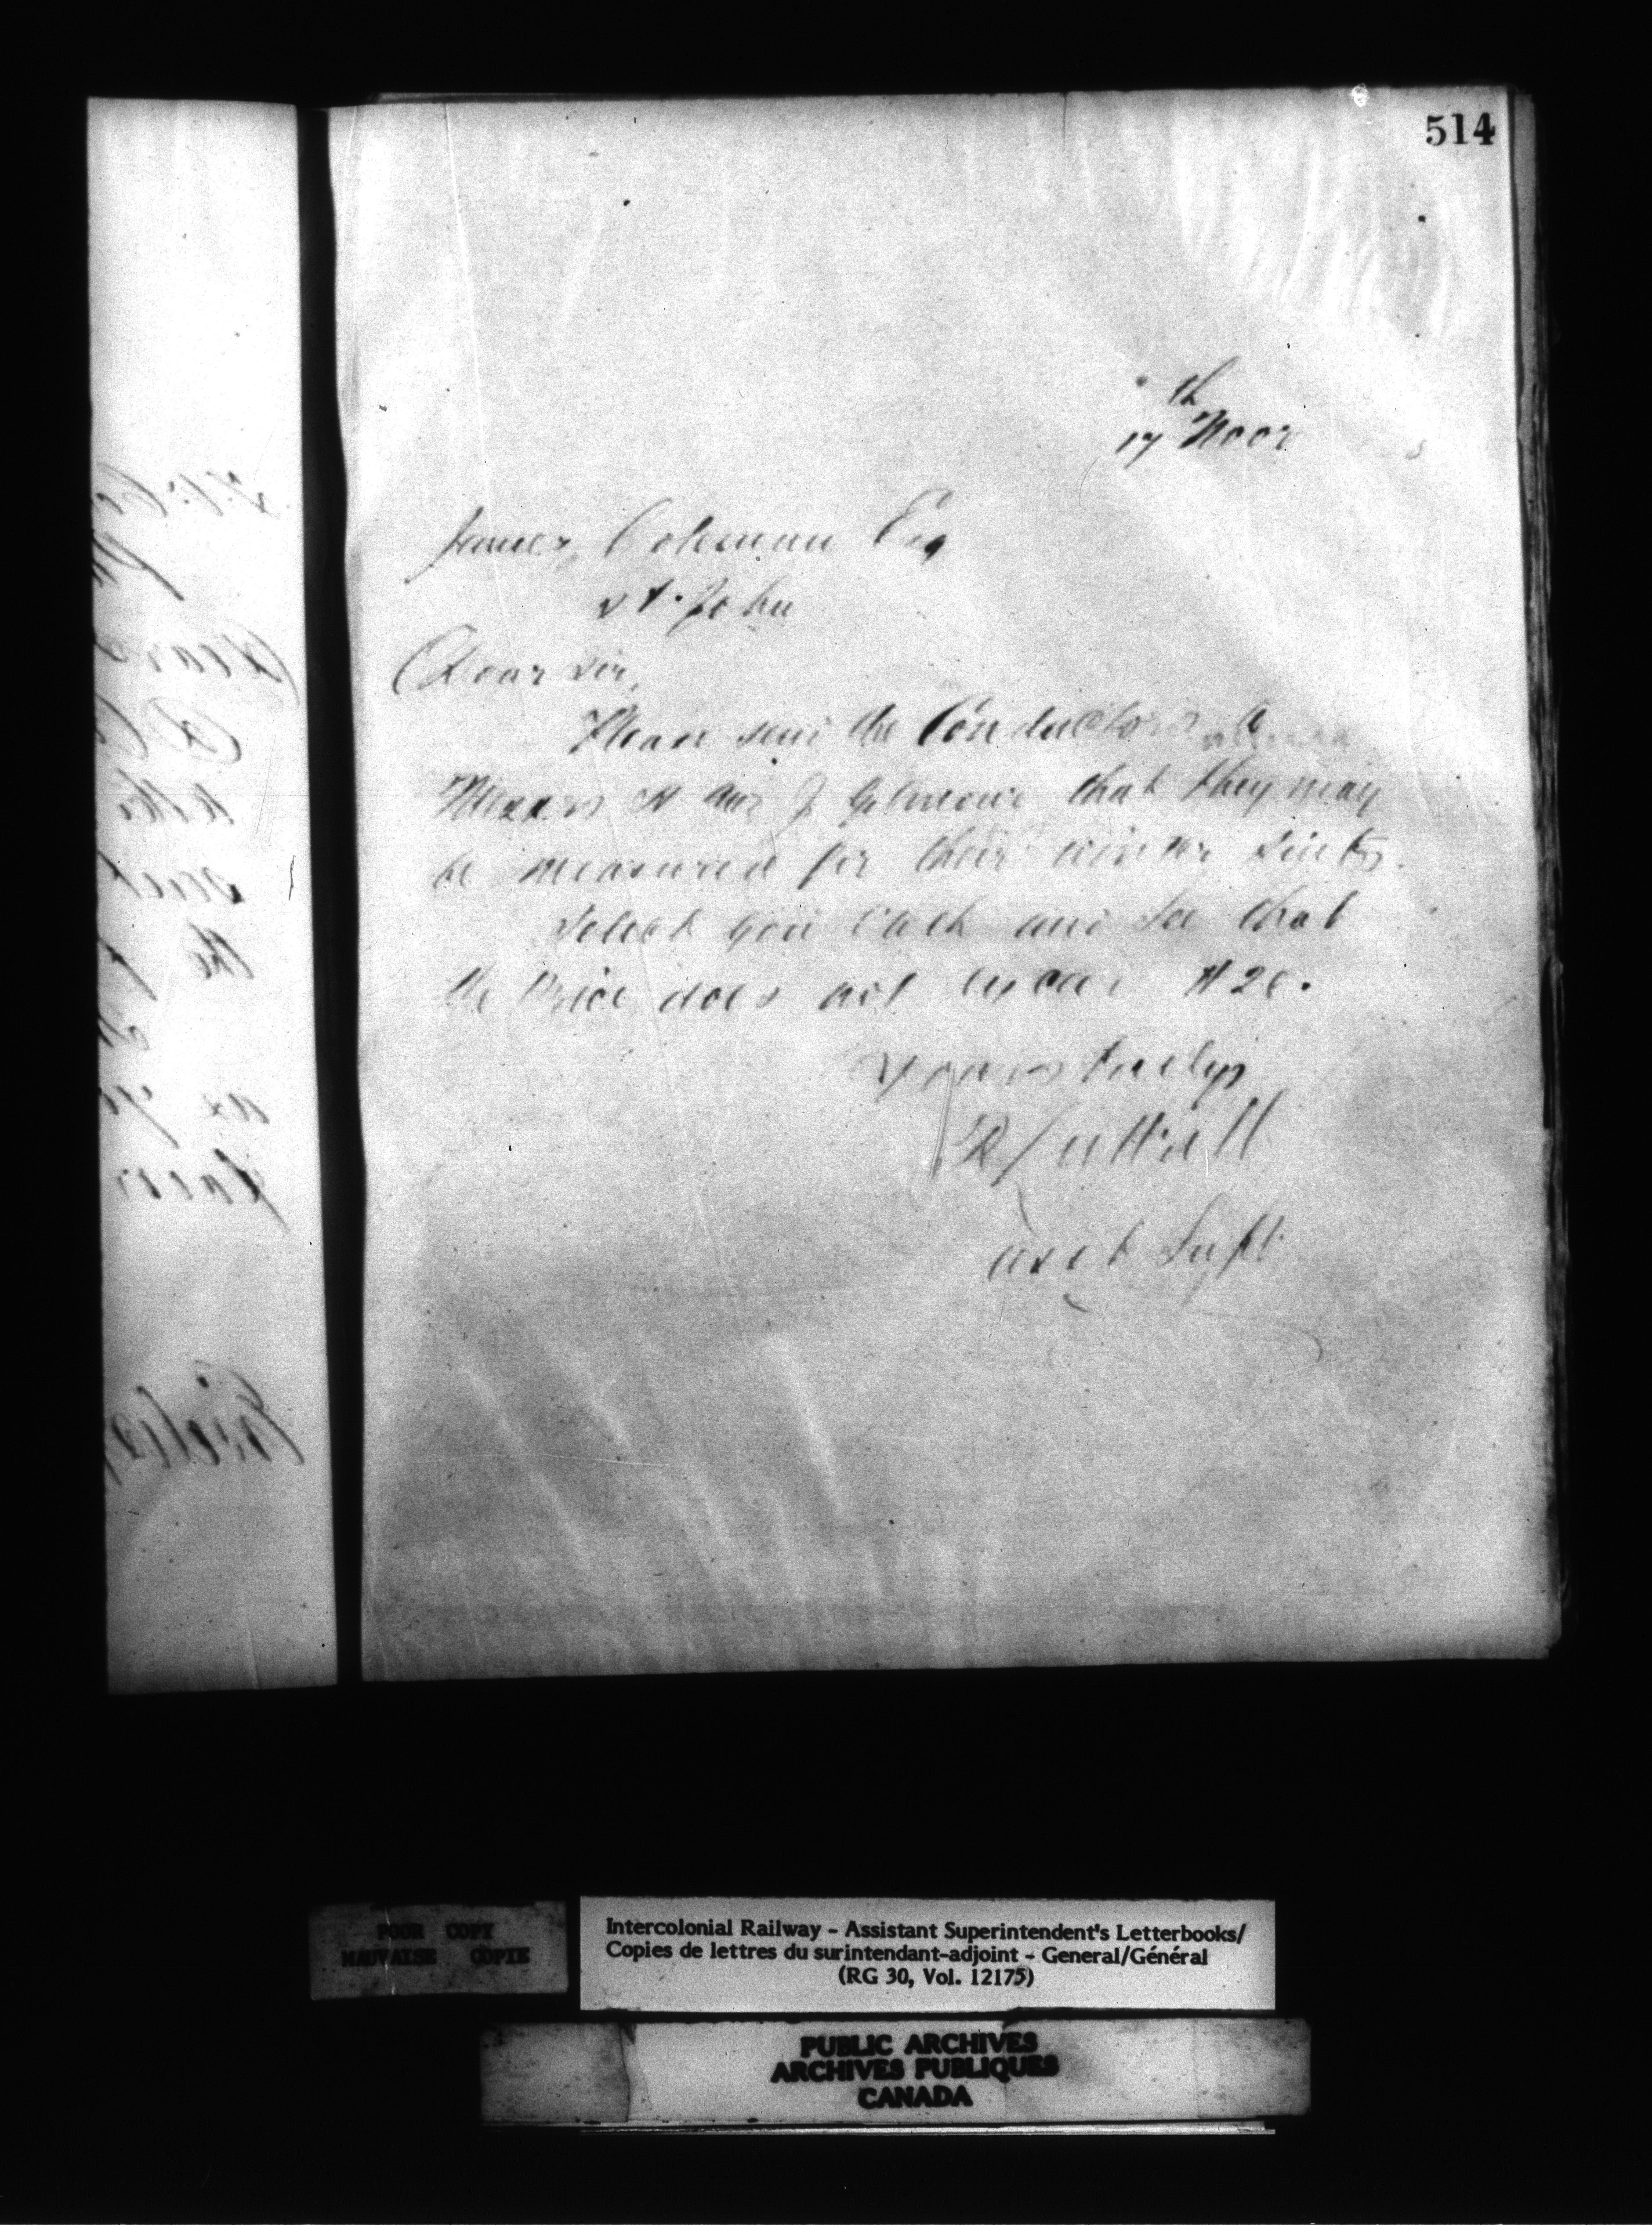 514
17th Novr
James Coleman Esq
St. John
Dear Sir,
Please send the Conductors to
Messrs A and J Gilmour that they may
be measured for their winter suits.
Select good cloth and see that
the Price does not exceed $20.
Yours truly
R Luttrell
Asst Supt.
POOR COPY
MAUVAISE COPIE
Intercolonial Railway - Assistant Superintendent's Letterbooks/
Copies de lettres du surintendant-adjoint - General/Général
(RG 30, Vol. 12175)
PUBLIC ARCHIVES
ARCHIVES PUBLIQUES
CANADA